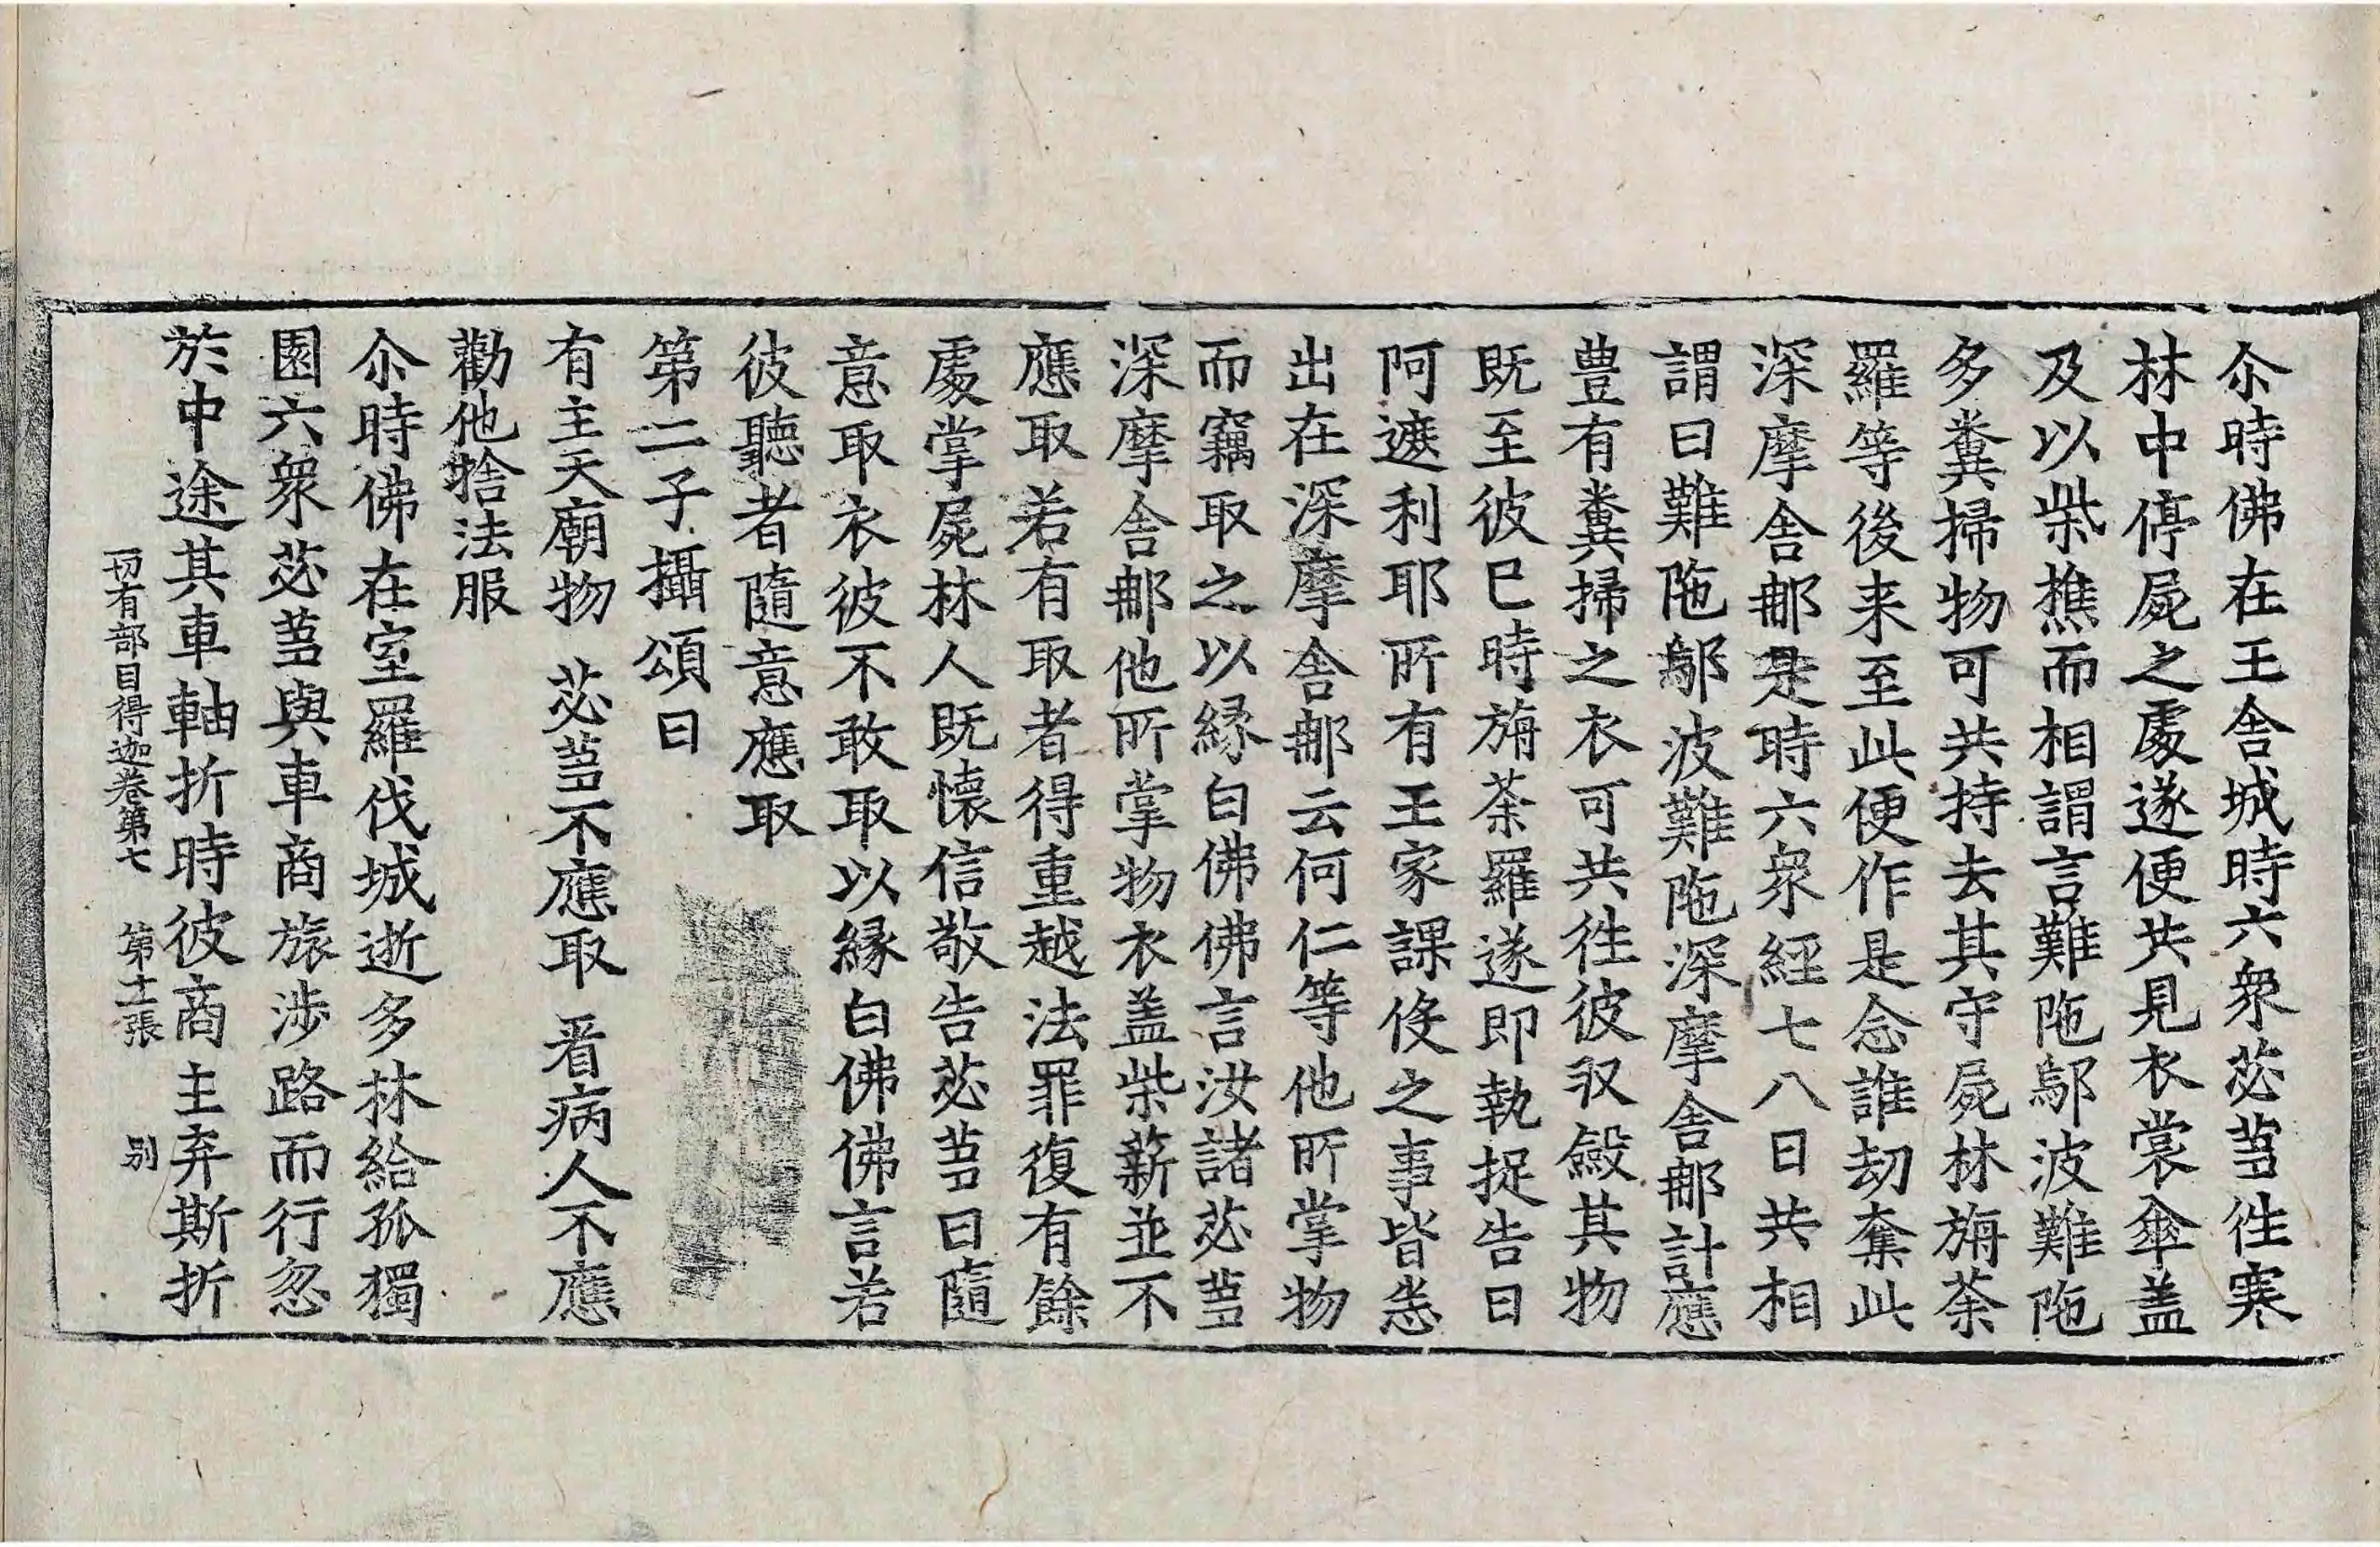 尒時佛在王舍城時六衆苾芻徃寒
林中停屍之處遂便共見衣裳傘盖
及以柴樵而相謂言難陁鄔波難陁
多糞掃物可共持去其守屍林旃荼
羅等後来至此便作是念誰劫奪此
深摩舍那是時六衆經七八日共相
謂曰難陁鄔波難陁深摩舍那計應
豊有糞掃之衣可共徃彼収斂其物
既至彼已時旃荼羅遂即執捉告曰
阿遮利耶所有王家課伇之事皆悉
出在深摩舍那云何仁等他所掌物
而竊取之以縁白佛佛言汝諸苾芻
深摩舍那他所掌物衣盖柴薪並不
應取若有取者得重越法罪復有餘
處掌屍林人既懷信敬告苾芻曰隨
意取衣彼不敢取以縁白佛佛言若
彼聽者隨意應取
第二子攝頌曰
有主天廟物　苾芻不應取　看病人不應
勸他捨法服
尒時佛在室羅伐城逝多林給孤獨
園六衆苾芻與車商旅涉路而行忽
於中途其車軸折時彼商主弃斯折
一切有部目得迦卷第七　第十二張　別